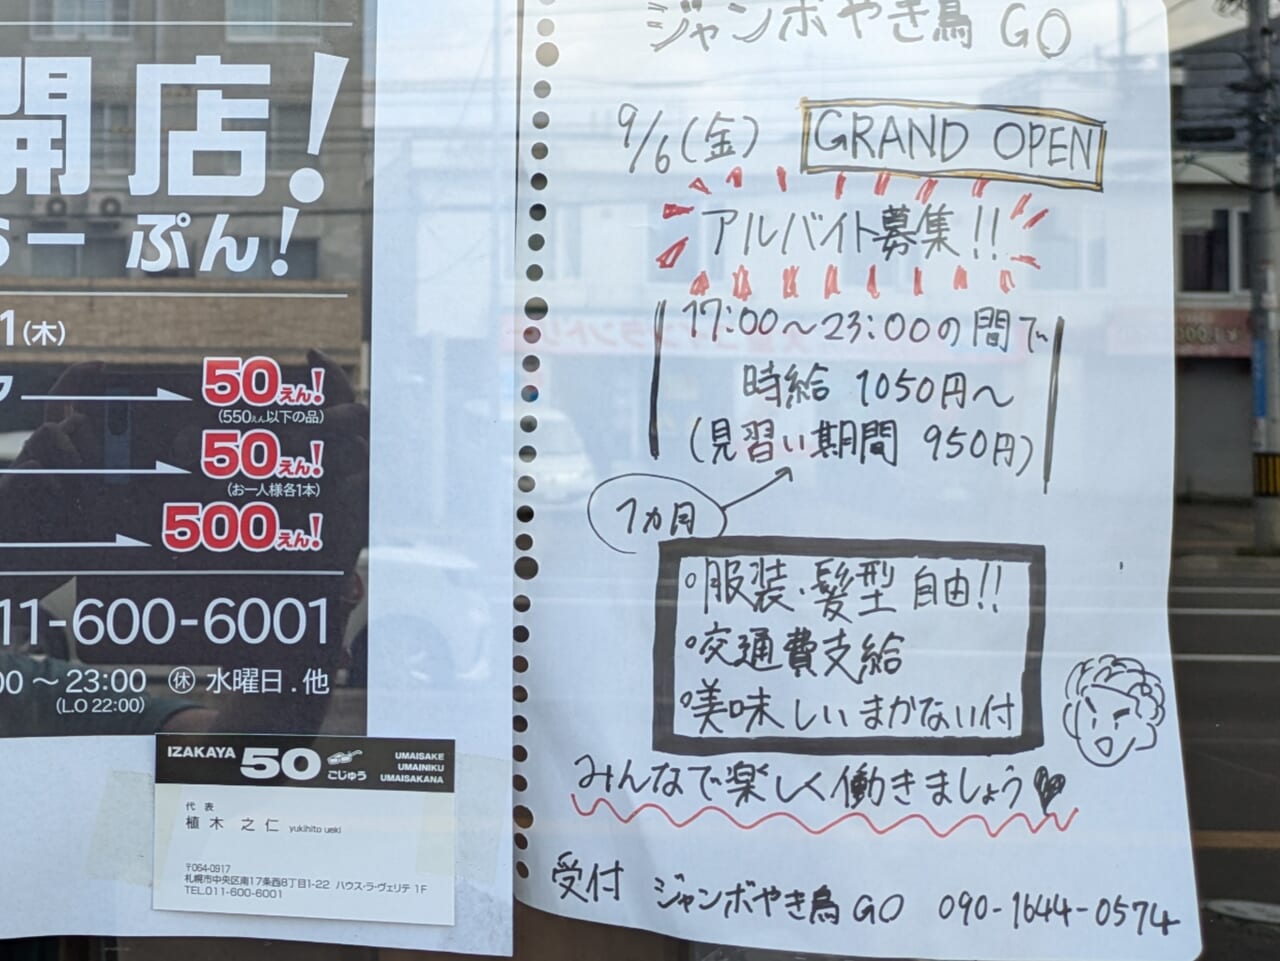 開店!
ぷん!
1(木)
50えん!
(550えん以下の品)
50えん!
(お一人様各1本)
500えん!
11-600-6001
00 ～ 23:00 ㊡ 水曜日.他
(LO 22:00)
IZAKAYA 50 ごじゅう
UMAISAKE
UMAINIKU
UMAISAKANA
代 表
植 木 之 仁 yukihito ueki
〒064-0917
札幌市中央区南17条西8丁目1-22 ハウス・ラ・ヴェリテ 1F
TEL.011-600-6001
ジャンボやき鳥 GO
9/6(金) GRAND OPEN
アルバイト募集!!
17:00～23:00の間で
時給 1050円～
(見習い期間 950円)
1ヵ月
°服装・髪型 自由!!
°交通費支給
°美味しいまかない付
みんなで楽しく働きましょう
受付 ジャンボやき鳥 GO 090-1644-0574